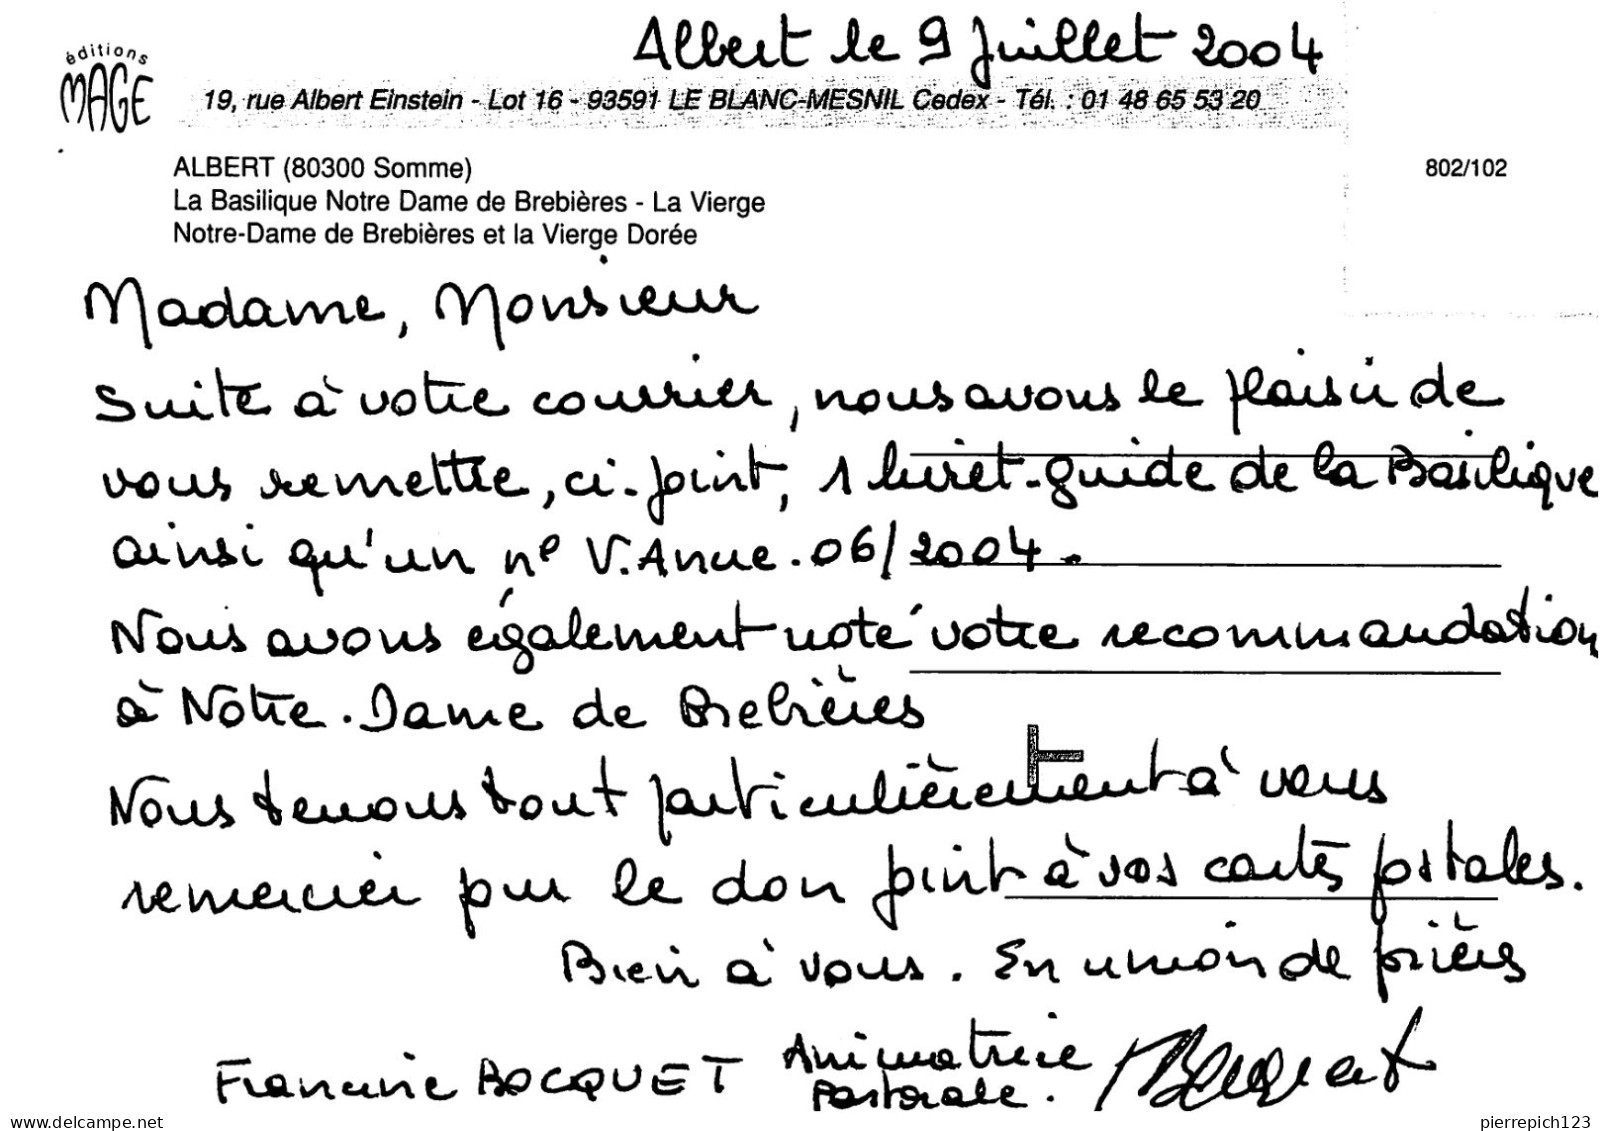 Albert le 9 Juillet 2004
éditions
MAGE
19, rue Albert Einstein - Lot 16 - 93591 LE BLANC-MESNIL Cedex - Tél. : 01 48 65 53 20
ALBERT (80300 Somme)
802/102
La Basilique Notre Dame de Brebières - La Vierge
Notre-Dame de Brebières et la Vierge Dorée
Madame, Monsieur
Suite à votre courrier, nous avons le plaisir de
vous remettre, ci-joint, 1 livret-guide de la Basilique
ainsi qu'un n° V. Ancre. 06/2004.
Nous avons également noté votre recommandation
à Notre-Dame de Brebières
Nous tenons tout particulièrement à vous
remercier pour le don joint à vos cartes postales.
Bien à vous. En union de prières
Francine BOCQUET Animatrice
Pastorale. Bocquet
www.delcampe.net
pierrepich123